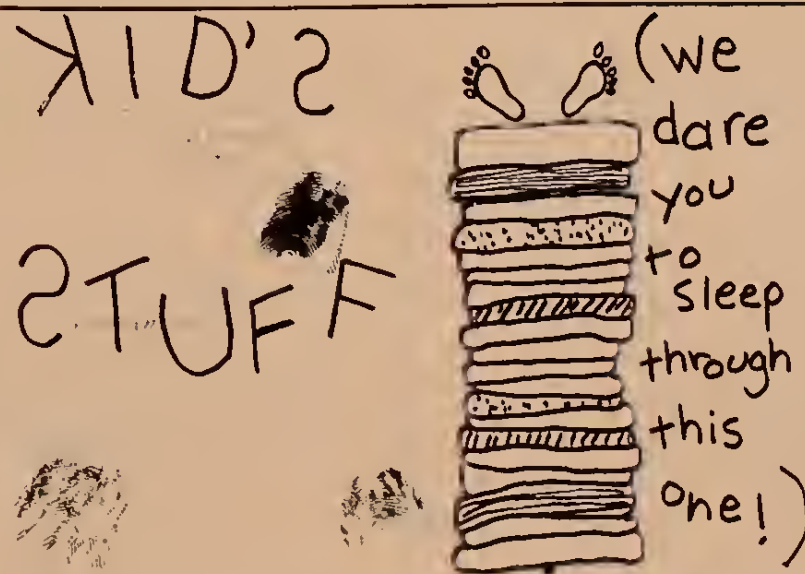 KID'S
STUFF
(we
dare
you
to
sleep
through
this
one!)